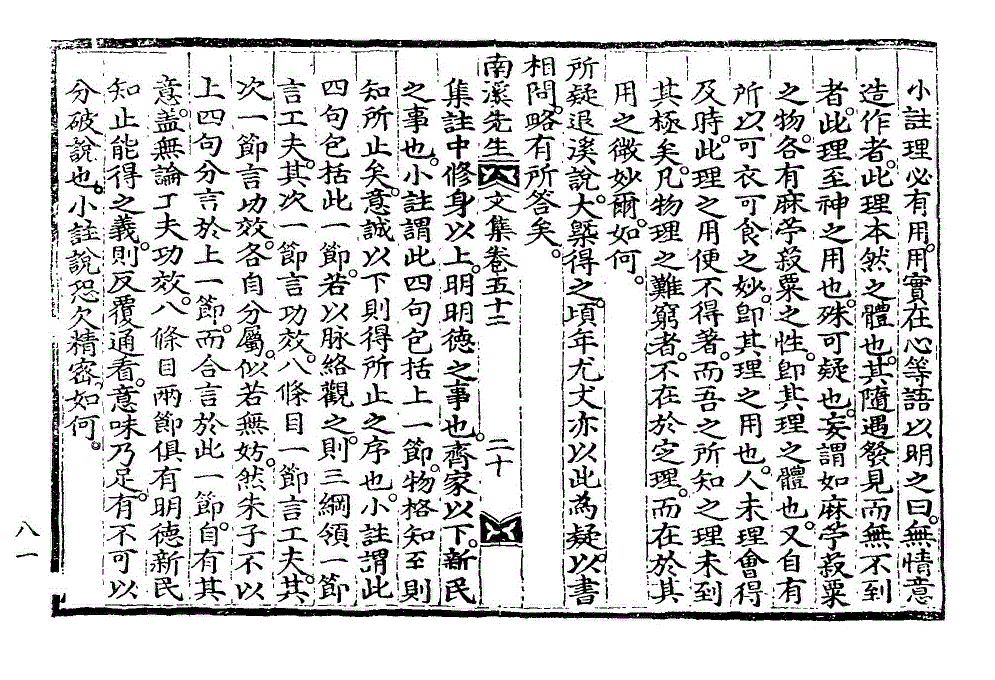 小註理必有用。用實在心等語以明之曰。無情意
造作者。此理本然之體也。其隨遇發見而無不到
者。此理至神之用也。殊可疑也。妄謂如麻苧菽粟
之物。各有麻苧菽粟之性。卽其理之體也。又自有
所以可衣可食之妙。卽其理之用也。人未理會得
及時。此理之用便不得著。而吾之所知之理未到
其極矣。凡物理之難窮者。不在於定理。而在於其
用之微妙爾。如何。
所疑退溪說。大槩得之。頃年尤丈亦以此為疑。以書
相問。略有所答矣。
南溪先生文集卷五十二 二十
集註中修身以上。明明德之事也。齊家以下。新民
之事也。小註謂此四句包括上一節。物格知至則
知所止矣。意誠以下則得所止之序也。小註謂此
四句包括此一節。若以脉絡觀之。則三綱領一節
言工夫。其次一節言功效。八條目一節言工夫。其
次一節言功效。各自分屬。似若無妨。然朱子不以
上四句分言於上一節。而合言於此一節。自有其
意。盖無論工夫功效。八條目兩節俱有明德新民
知止能得之義。則反覆通看。意味乃足。有不可以
分破說也。小註說恐欠精密。如何。
八一